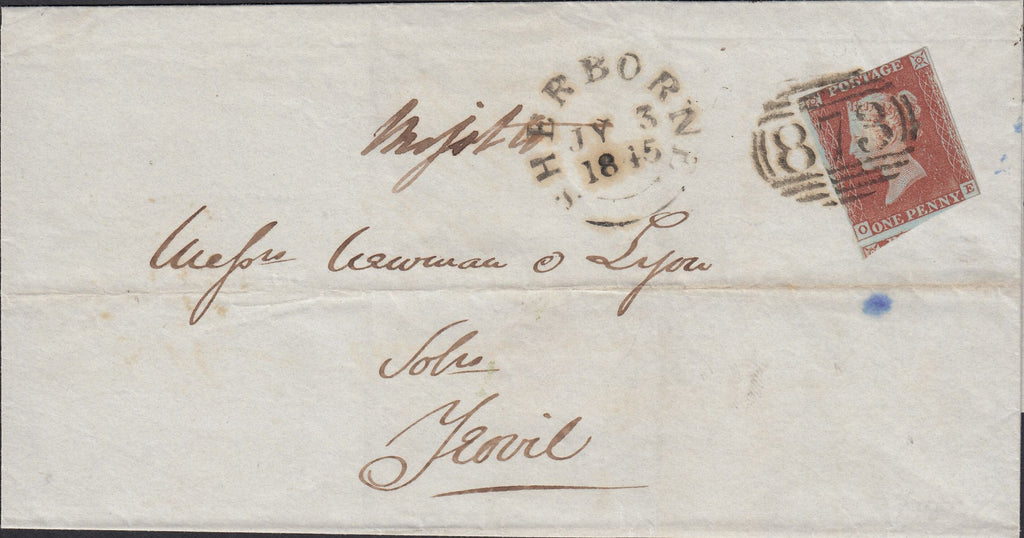 SHERBORNE
JY 3
1845
873
POSTAGE
ONE PENNY
O E
Messrs Newman & Lyon
Solrs
Yeovil